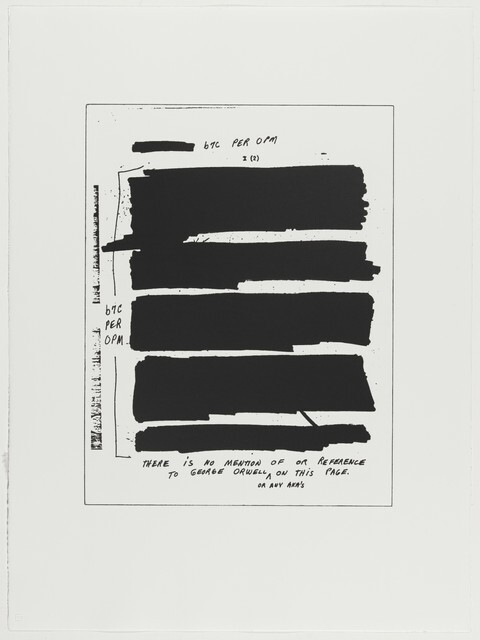 b7C PER OPM
I (2)
b7C
PER
OPM
THERE IS NO MENTION OF OR REFERENCE
TO GEORGE ORWELL ^ ON THIS PAGE.
OR ANY AKA'S